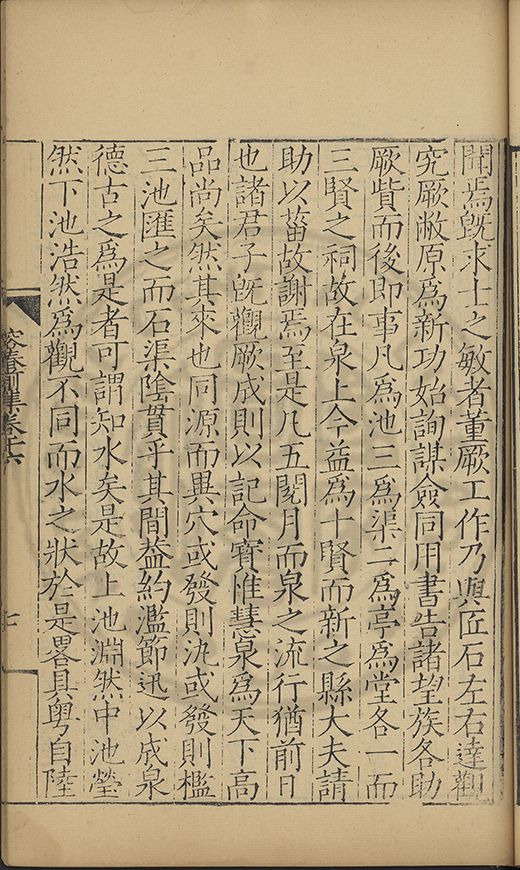 聞焉旣求士之敏者董厥工作乃輿匠石左右達觀
究厥敝原爲新功始詢謀僉同用書告諸望族各助
厥貲而後即事凡爲池三爲渠二爲亭爲堂各一而
三賢之祠故在泉上今益爲十賢而新之縣大夫請
助以菑故謝焉至是凡五閱月而泉之流行猶前日
也諸君子旣觀厥成則以記命寳惟慧泉爲天下高
品尚矣然其來也同源而異穴或發則氿或發則檻
三池匯之而石渠隂貫乎其間葢約濫節迅以成泉
德古之爲是者可謂知水矣是故上池淵然中池瑩
然下池浩然爲觀不同而水之狀於是畧具粤自陸
容春前集卷十六
七